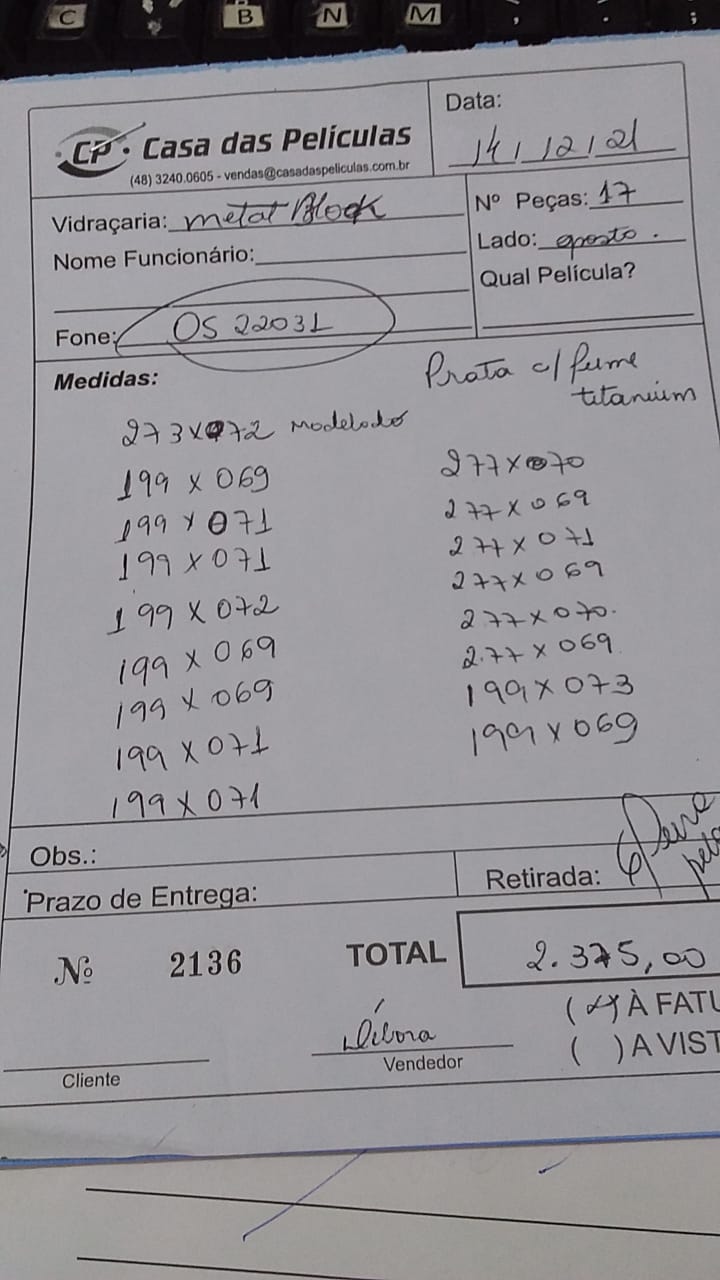 C B N M , . ;
CP · Casa das Películas
(48) 3240.0605 - vendas@casadaspeliculas.com.br
Data:
14 / 12 / 21
Vidraçaria: metal Block
Nome Funcionário:
Fone: OS 22031
Nº Peças: 17
Lado: oposto.
Qual Película?
Medidas:
Prata c/ fume
titanium
273x072 modelado
199 x 069
199 x 071
199 x 071
199 x 072
199 x 069
199 x 069
199 x 071
199 x 071
277x070
277x069
277x071
277x069
277x070.
2.77x069
199x073
199x069
Obs.:
Prazo de Entrega:
Retirada:
Nº 2136
TOTAL 2.375,00
Débora
Cliente
Vendedor
(x) À FATU
( ) A VIST